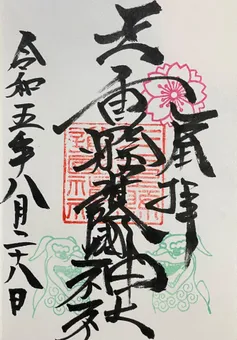 奉拝
縣護國神社
令和五年八月二十八日